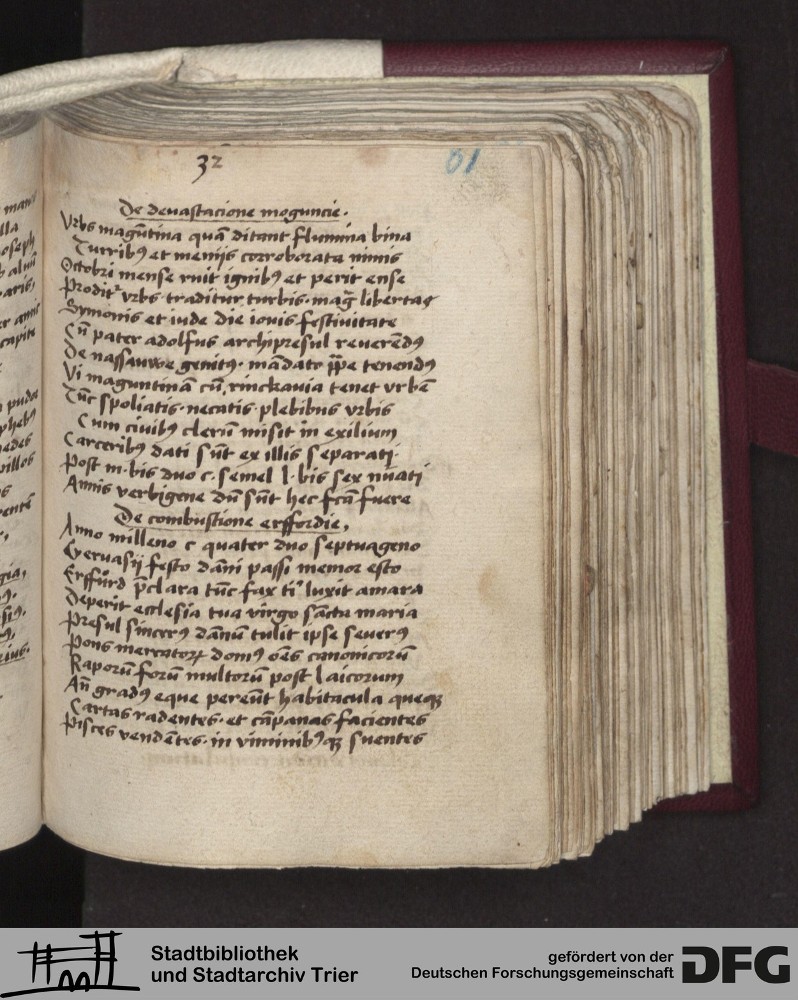 32
61
De deuastacione moguncie.
Vrbs magu̅tina qua̅ ditant flumina bina
Turribꝫ et menijs corroborata nimis
Octobri mense ruit ignibꝫ et perit ense
Prodit᷑ vrbs traditur turbis mag̅ libertas
Symonis et iude die iouis festiuitate
Cu̅ pater adolfus archipresul reuere̅dꝰ
De nassauwe genitꝰ. ma̅dato p̅pe tenendꝰ
Vi maguntina̅ cu̅ rinckauia tenet vrbe̅
Tu̅c spoliatis. necatis. plebibus vrbis
Cum ciuibꝫ cleru̅ misit in exilium
Carceribꝫ dati su̅t ex illis separati.
Post m. bis duo c. semel l. bis sex nu̅ati
Annis verbigene du̅ su̅t hec fc̅a fuere
De combustione erffordie,
Anno milleno c quater duo septuageno
Geruasij festo da̅ni passi memor esto
Erffurd p̅clara tu̅c fax ti' luxit amara
Deperit ecclesia tua virgo sa̅cta maria
Presul sincerꝰ da̅nu̅ tulit ipse seuerꝰ
Pons mercatorꝝ domꝰ o̅es canonicoru̅
Raporu̅ foru̅ multoru̅ post laicorum
An̅ gradꝰ eque pereu̅t habitacula queqꝫ
Cartas radentes. et ca̅panas facientes
Pisces vende̅tes. in viminibꝰqꝫ suentes
man
lla
oseph
alui̅
aris,
capite
puda
edes
villos
gia,
Stadtbibliothek
und Stadtarchiv Trier
gefördert von der
Deutschen Forschungsgemeinschaft
DFG